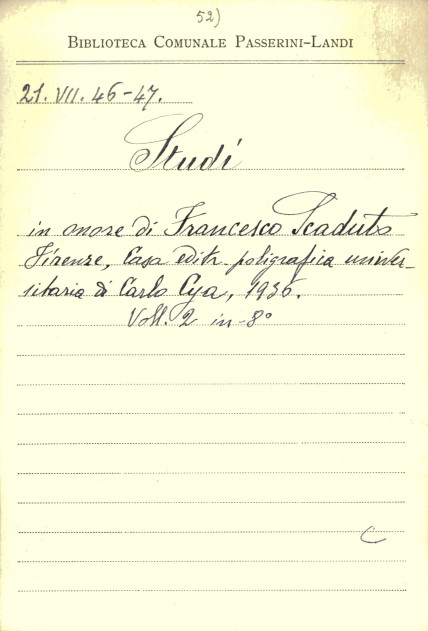 52)
BIBLIOTECA COMUNALE PASSERINI-LANDI
21. VII. 46-47.
Studi
in onore di Francesco Scaduto
Firenze, Casa editr. poligrafica univer-
sitaria di Carlo Cya, 1936.
Voll. 2 in-8°
C